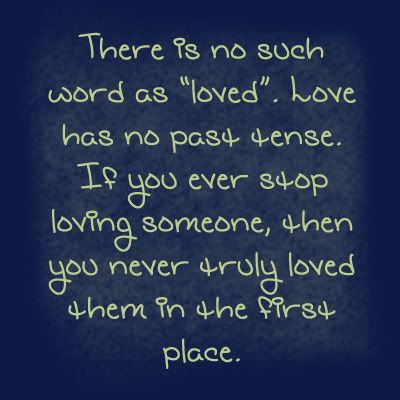 There is no such
word as "loved". Love
has no past tense.
If you ever stop
loving someone, then
you never truly loved
them in the first
place.